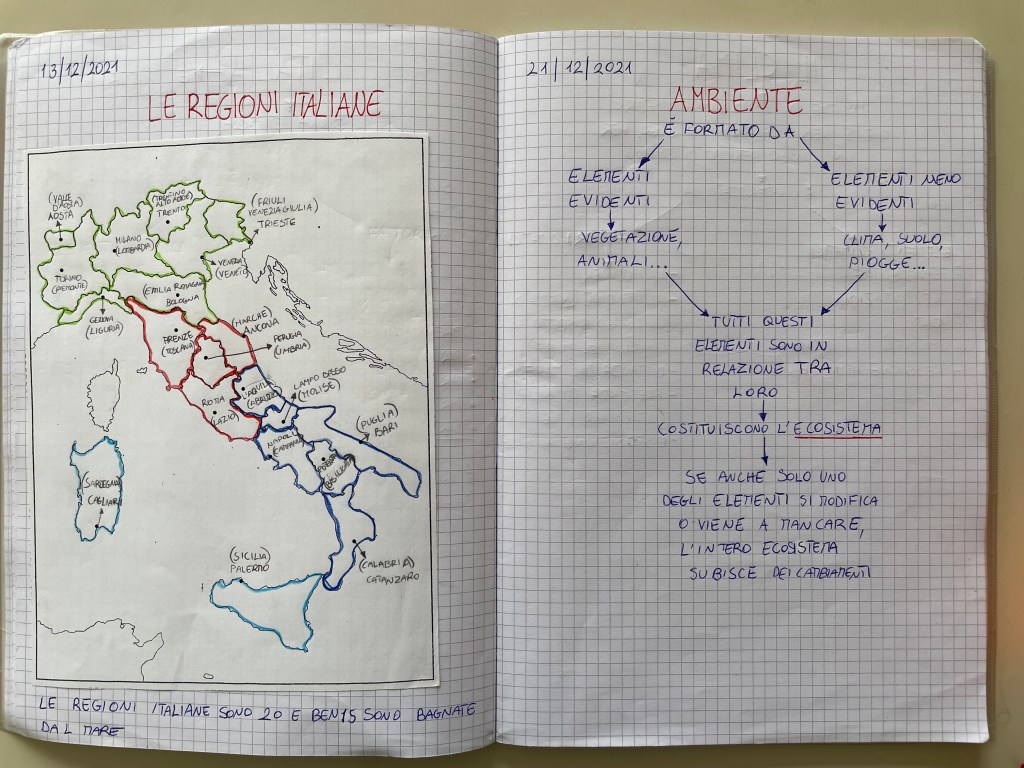 13/12/2021
LE REGIONI ITALIANE
(VALLE
D'AOSTA)
AOSTA
(TRENTINO
ALTO ADIGE)
TRENTO
(FRIULI
VENEZIA GIULIA)
TRIESTE
MILANO
(LOMBARDIA)
VENEZIA
(VENETO)
TORINO
(PIEMONTE)
(EMILIA ROMAGNA)
BOLOGNA
GENOVA
(LIGURIA)
(MARCHE)
ANCONA
FIRENZE
(TOSCANA)
PERUGIA
(UMBRIA)
L'AQUILA
(ABRUZZO)
CAMPO BASSO
(MOLISE)
ROMA
(LAZIO)
(PUGLIA)
BARI
NAPOLI
(CAMPANIA)
POTENZA
(BASILICATA)
SARDEGNA
CAGLIARI
(SICILIA)
PALERMO
(CALABRIA)
CATANZARO
LE REGIONI ITALIANE SONO 20 E BEN 15 SONO BAGNATE
DAL MARE
21/12/2021
AMBIENTE
É FORMATO DA
ELEMENTI
EVIDENTI
ELEMENTI MENO
EVIDENTI
VEGETAZIONE,
ANIMALI...
CLIMA, SUOLO,
PIOGGE...
TUTTI QUESTI
ELEMENTI SONO IN
RELAZIONE TRA
LORO
COSTITUISCONO L'ECOSISTEMA
SE ANCHE SOLO UNO
DEGLI ELEMENTI SI MODIFICA
O VIENE A MANCARE,
L'INTERO ECOSISTEMA
SUBISCE DEI CAMBIAMENTI